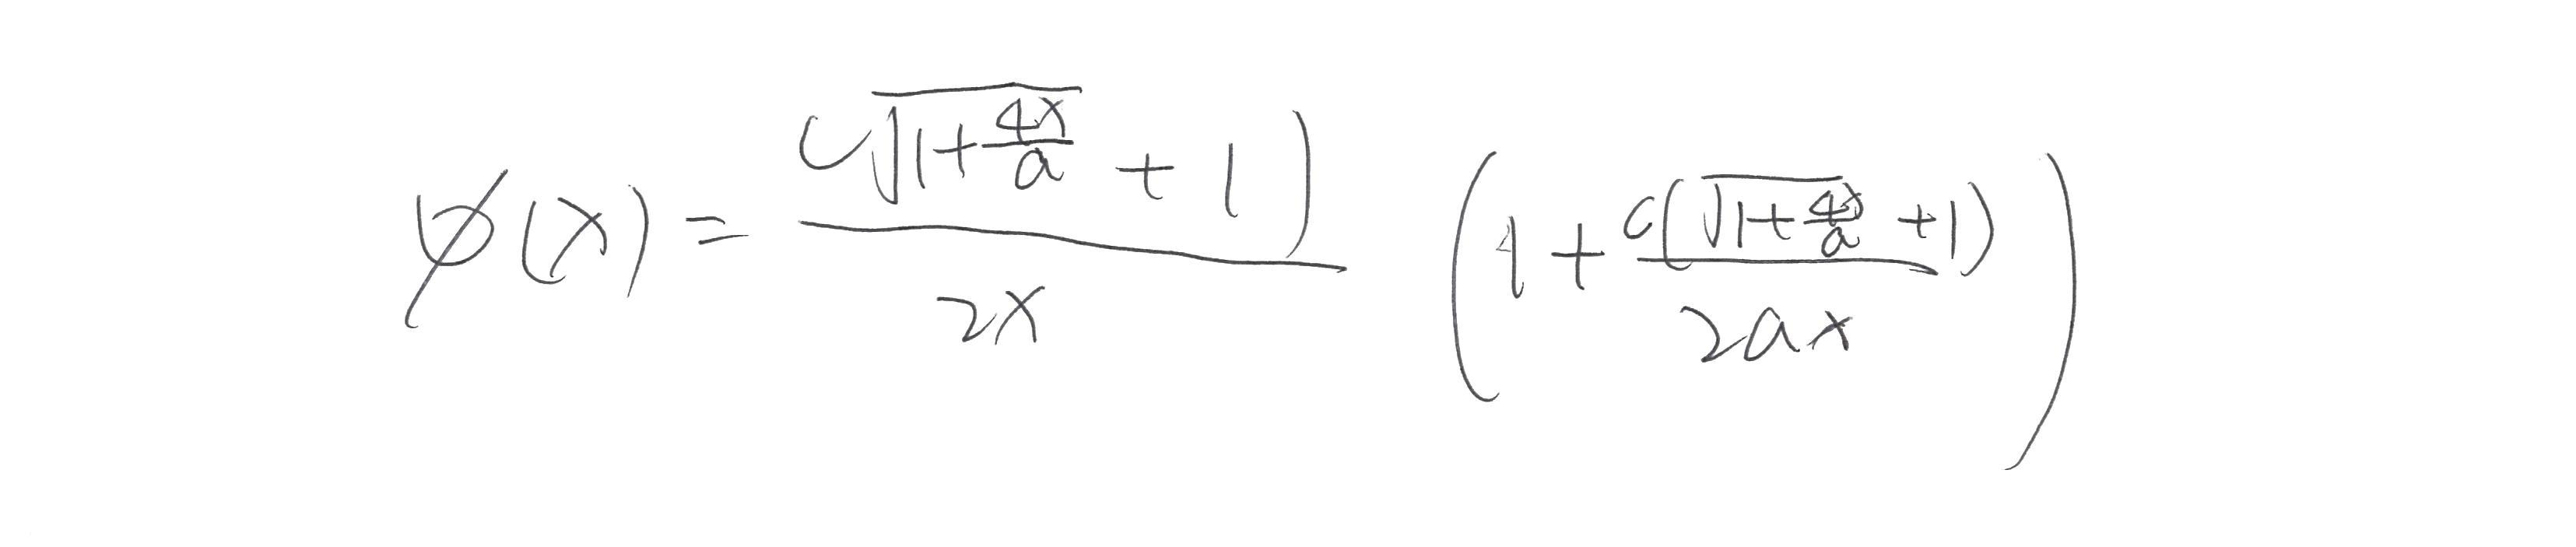 ψ(x) = \frac{(\sqrt{1+\frac{4x}{a}} + 1)}{2x} \left(1 + \frac{c(\sqrt{1+\frac{4x}{a}} + 1)}{2ax}\right)